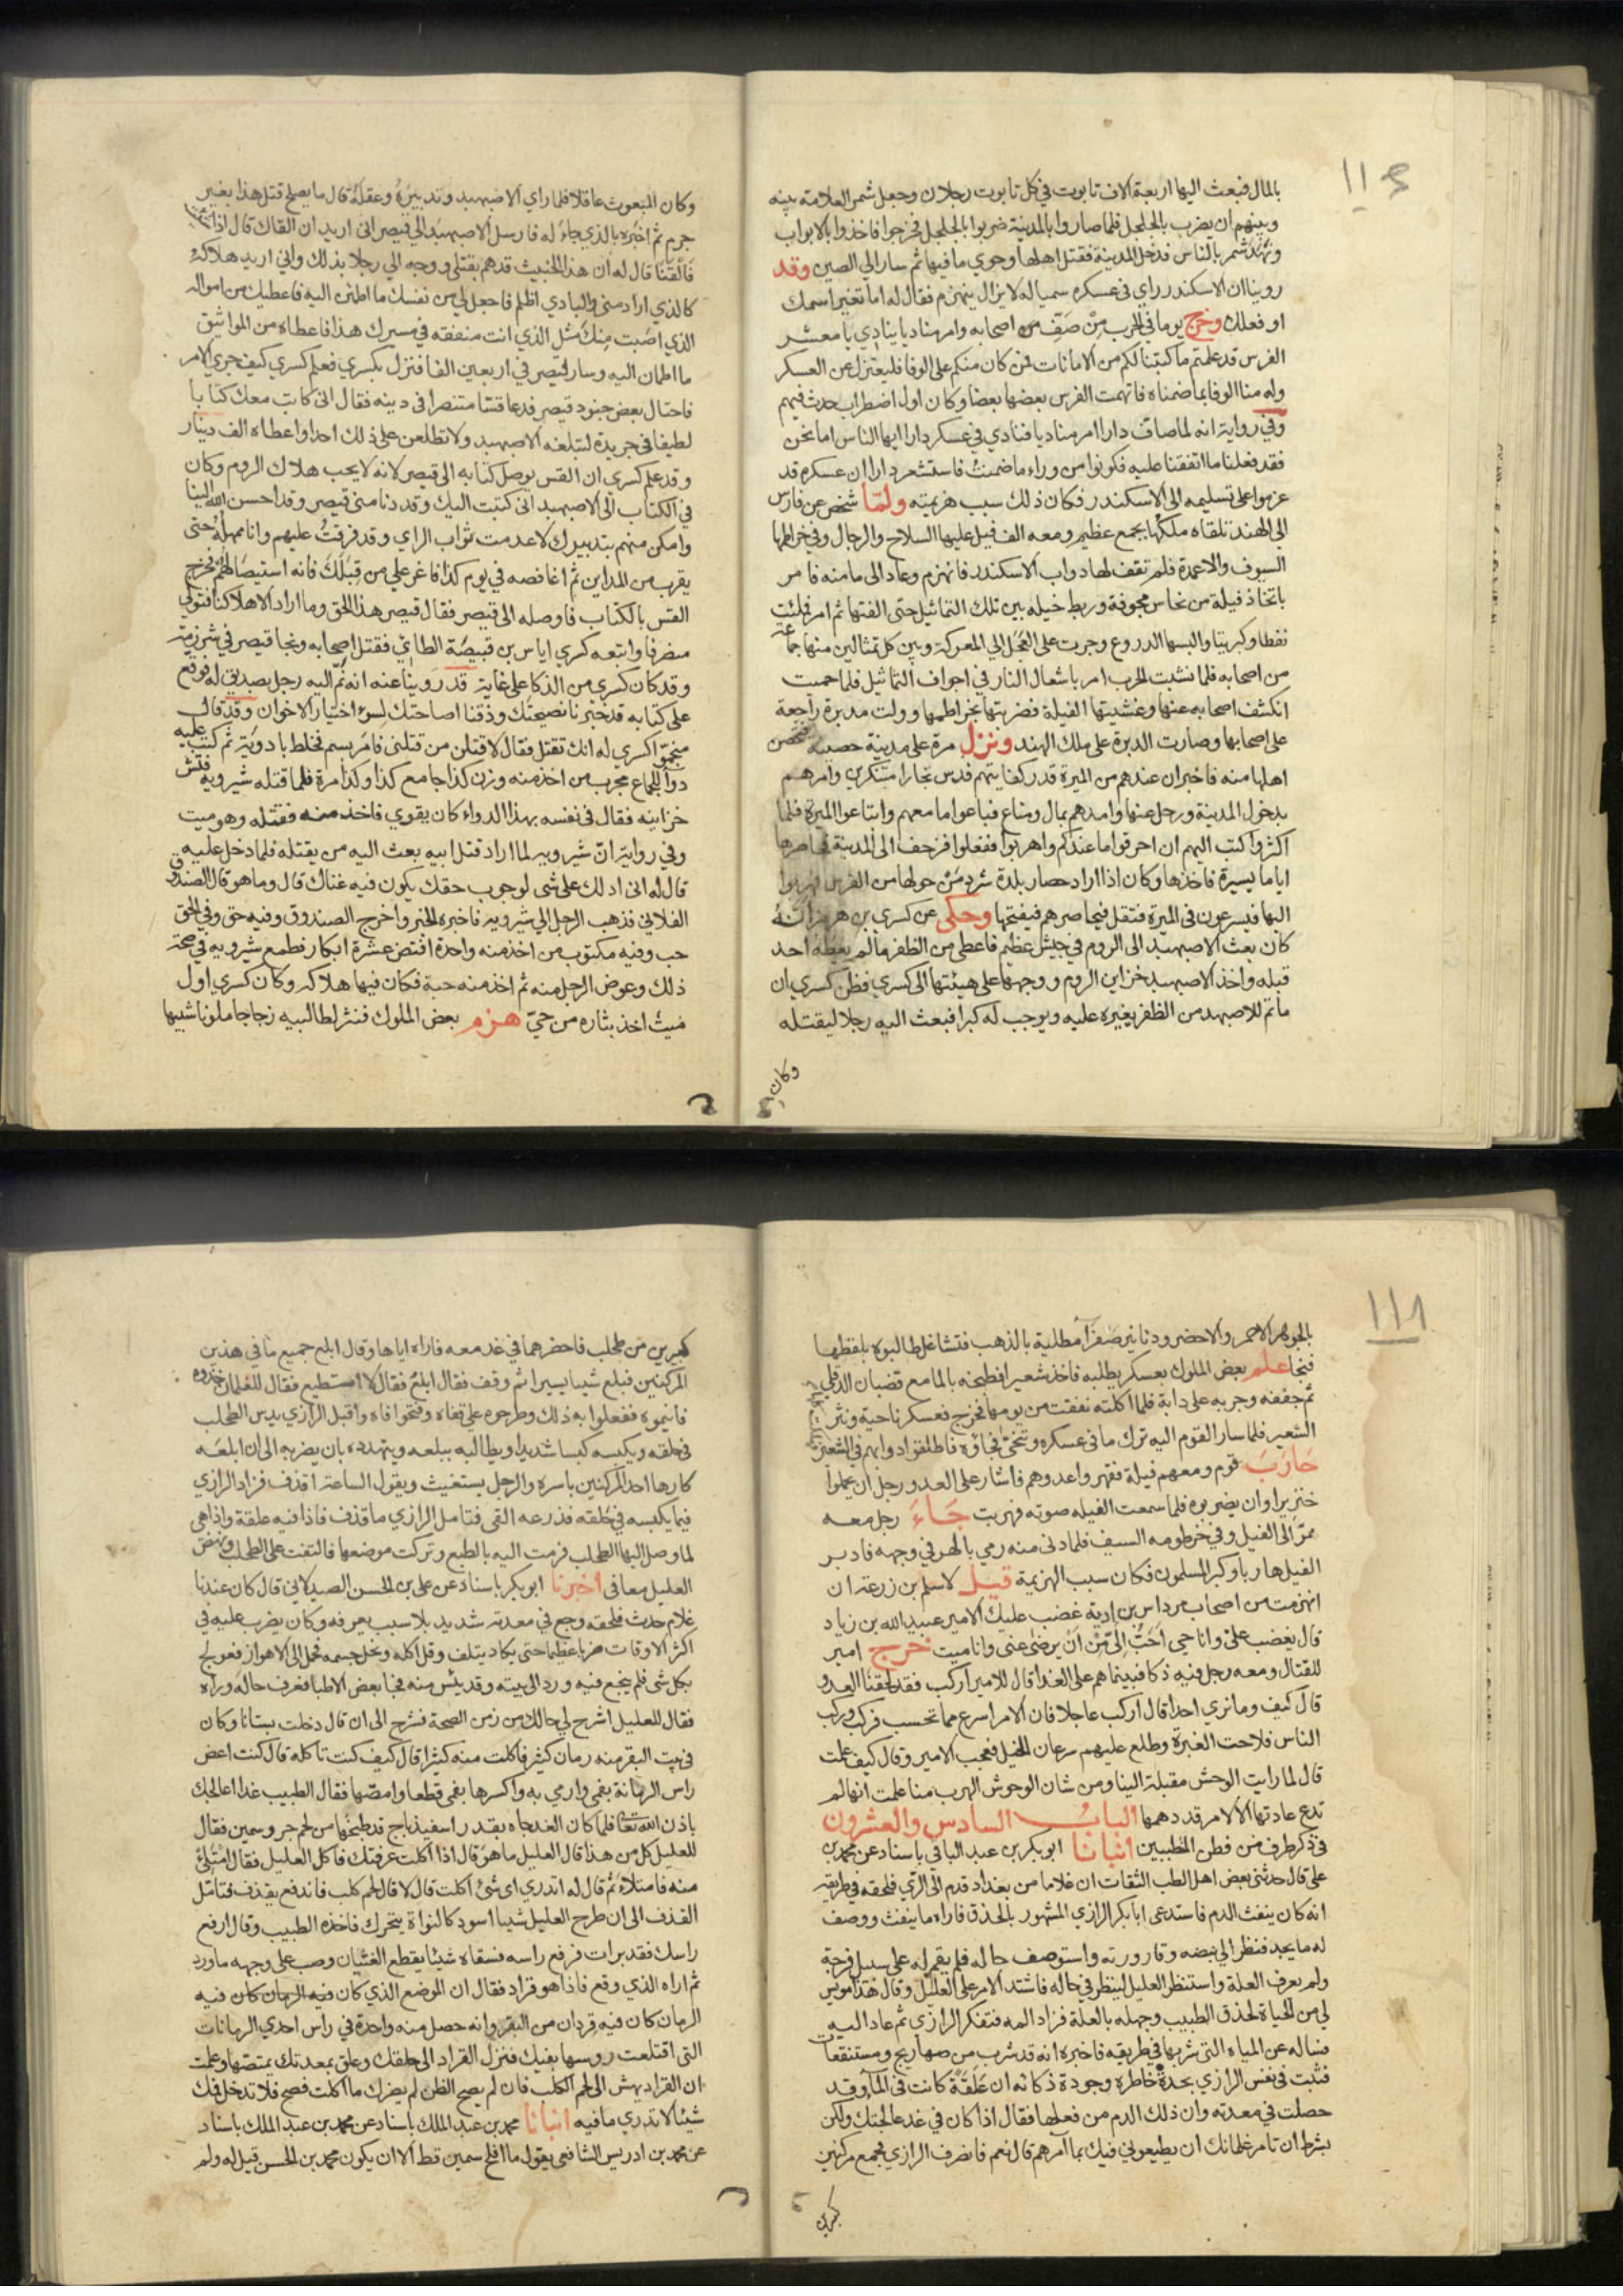 ١١٠
بالمال فبعث اليها اربعة الاف تابوت في كل تابوت رجلان وجعل شمر العلامة بينه
وبينهم ان يضرب بالجلجل فلما صاروا بالمدينة ضربوا بالجلجل فخرجوا فاخذوا بالابواب
ونهد شمر بالناس فدخل المدينة فقتل اهلها وحوي ما فيها ثم سار الي الصين وقد
روينا ان الاسكندر راي في عسكره سميا له لا يزال ينهزم فقال له اما تغير اسمك
او فعلك وخرج يوما في الحرب من صف من اصحابه وامر مناديا ينادي يا معشر
الفرس قد علمتم ما كتبنا لكم من الامانات فمن كان منكم علي الوفا فليعتزل عن العسكر
وله منا الوفا بما ضمناه فاتهمت الفرس بعضها بعضا وكان اول اضطراب حدث فيهم
وفي رواية انه لما صاف دارا امر مناديا فنادي في عسكر دارا ايها الناس اما نحن
فقد فعلنا ما اتفقنا عليه فكونوا من وراء ما ضمنت فاستشعر دارا ان عسكره قد
عزموا على تسليمه الى الاسكندر فكان ذلك سبب هزيمته ولما شخص عن فارس
الى الهند تلقاه ملكها بجمع عظيم ومعه الف فيل عليها السلاح والرجال وفي خراطمها
السيوف والاعمدة فلم تقف لها دواب الاسكندر فانهزم وعاد الى مامنه فامر
باتخاذ فيلة من نحاس مجوفة وربط خيله بين تلك التماثيل حتى الفتها ثم امر فملئت
نفطا وكبريتا والبسها الدروع وجرت على العجل الي المعركة وبين كل تمثالين منها جماعة
من اصحابه فلما نشبت الحرب امر باشعال النار في اجواف التماثيل فلما حميت
انكشف اصحابه عنها وغشيتها الفيلة فضربتها بخراطمها وولت مدبرة راجعة
على اصحابها وصارت الدبرة على ملك الهند ونزل مرة على مدينة حصينة فتحصن
اهلها منه فاخبر ان عندهم من الميرة قدر كفايتهم فدس تجارا متنكرين وامرهم
بدخول المدينة ورحل عنها وامدهم بمال ومتاع فباعوا ما معهم وابتاعوا الميرة فلما
اكثروا كتب اليهم ان احرقوا ما عندكم واهربوا ففعلوا فزحف الى المدينة فحاصرها
اياما يسيرة فاخذها وكان اذا اراد حصار بلدة شرد من حولها من القرى فهربوا
اليها فيسرعون في الميرة فتقل فيحاصرهم فيفتحها وحكى عن كسري بن هرمز انه
كان بعث الاصبهبد الى الروم في جيش عظيم فاعطي من الظفر ما لم يعطه احد
قبله واخذ الاصبهبد خزاين الروم ووجهها على هيئتها الى كسري فظن كسري ان
ما تم للاصبهبد من الظفر يغيره عليه ويوجب له كبرا فبعث اليه رجلا ليقتله
وكان
وكان المبعوث عاقلا فلما راي الاصبهبد وتدبيره وعقله قال ما يصلح قتل هذا بغير
جرم ثم اخبره بالذي جاء له فارسل الاصبهبد الي قيصر اني اريد ان القاك قال اذا شئت
فالتقيا قال له ان هذا الخبيث قد هم بقتلي ووجه الي رجلا بذلك واني اريد هلاكه
كالذي اراد مني والبادي اظلم فاجعل لي من نفسك ما اطمئن اليه فاعطيك من امواله
الذي اصبت منك مثل الذي انت منفقه في مسيرك هذا فاعطاه من المواثيق
ما اطمان اليه وسار قيصر في اربعين الفا فنزل بكسري فعلم كسري كيف جري الامر
فاحتال بعض جنود قيصر فدعا قسا متنصرا في دينه فقال اني كاتب معك كتابا
لطيفا في جريدة لتبلغه الاصبهبد ولا تطلعن على ذلك احدا واعطاه الف دينار
وقد علم كسري ان القس يوصل كتابه الى قيصر لانه لا يحب هلاك الروم وكان
في الكتاب الى الاصبهبد اني كتبت اليك وقد دنا مني قيصر وقد احسن الله الينا
وامكن منهم بتدبيرك لا عدمت ثواب الراي وقد فرقت عليهم وانا ممهله حتى
يقرب من المداين ثم اغافصه في يوم كذا فاغر علي من قبلك فانه استيصالهم فخرج
القس بالكتاب فاوصله الى قيصر فقال قيصر هذا الحق وما اراد الا هلاكنا فتولى
منصرفا واتبعه كسري اياس بن قبيصة الطاي فقتل اصحابه ونجا قيصر في شرزمة
وقد كان كسري من الذكا على غاية قد روينا عنه انه نم اليه رجل بصديق له فوقع
على كتابه قد خبرنا نصيحتك وذقنا اصاحتك لسوء اختيار الاخوان وقد قال
منجموا كسري له انك تقتل فقال لاقتلن من قتلني فامر بسم فخلط بادوية ثم كتب عليه
دوا للجماع مجرب من اخذ منه وزن كذا جامع كذا وكذا مرة فلما قتله شيرويه فتش
خزاينه فقال في نفسه بهذا الدواء كان يقوي فاخذ منه فقتله وهو ميت
وفي رواية ان شيرويه لما اراد قتل ابيه بعث اليه من يقتله فلما دخل عليه
قال له اني ادلك على شي لوجوب حقك يكون فيه غناك قال وما هو قال الصندوق
الفلاني فذهب الرجل الي شيرويه فاخبره الخبر واخرج الصندوق وفيه حق وفي الحق
حب وفيه مكتوب من اخذ منه واحدة افتض عشرة ابكار فطمع شيرويه في صحة
ذلك وعوض الرجل منه ثم اخذ منه حبة فكان فيها هلاكه وكان كسري اول
ميت اخذ بثاره من حي هزم بعض الملوك فنثر لطالبيه زجاجا ملونا شبيها
١١١
بالجوهر الاحمر والاخضر ودنانير صفرا مطلية بالذهب فتشاغل طالبوه بلقطها
فنجا علم بعض الملوك بعسكر يطلبه فاخذ شعيرا فطبخه بالما مع قضبان الدفلي
ثم جففه وجربه على دابة فلما اكلته نفقت من يومها فخرج فعسكر ناحية ونثر
الشعير فلما سار القوم اليه ترك ما في عسكره وتنحى فجاؤه فاطلقوا دوابهم في الشعير
حارب قوم ومعهم فيلة فقهروا عدوهم فاشار على العدو رجل ان يحملوا
خنزيرا وان يضربوه فلما سمعت الفيله صوته فهربت جاء رجل معه
هر الى الفيل وفي خرطومه السيف فلما دنى منه رمي بالهر في وجهه فادبر
الفيل هاربا وكبر المسلمون فكان سبب الهزيمة قيل لاسلم بن زرعة ان
انهزمت من اصحاب مرداس بن ادية غضب عليك الامير عبيد الله بن زياد
قال يغضب علي وانا حي احب الي من ان يرضى عني وانا ميت خرج امير
للقتال ومعه رجل فيه ذكا فبينما هم على الغدا قال للامير اركب فقد لحقنا العدو
قال كيف وما نري احدا قال اركب عاجلا فان الامر اسرع مما تحسب فركب وركب
الناس فلاحت الغبرة وطلع عليهم سرعان الخيل فعجب الامير وقال كيف علمت
قال لما رايت الوحش مقبلة الينا ومن شان الوحوش الهرب منا علمت انها لم
تدع عادتها الا لامر قد دهمها الباب السادس والعشرون
في ذكر طرف من فطن المطببين انبانا ابو بكر بن عبد الباقي باسناد عن محمد بن
علي قال حدثني بعض اهل الطب الثقات ان غلاما من بغداد قدم الى الري فلحقه في طريقه
انه كان ينفث الدم فاستدعى ابا بكر الرازي المشهور بالحذق فاراه ما ينفث ووصف
له ما يجد فنظر الي نبضه وقارورته واستوصف حاله فلم يقم له على سبيل فرجة
ولم يعرف العلة واستنظر العليل لينظر في حاله فاشتد الامر على العليل وقال هذا مويس
لي من الحياة لحذق الطبيب وجهله بالعلة فزاد المه فتفكر الرازي ثم عاد اليه
فساله عن المياه التي شربها في طريقه فاخبره انه قد شرب من صهاريج ومستنقعات
فثبت في نفس الرازي بحدة خاطره وجودة ذكائه ان علقة كانت في الما وقد
حصلت في معدته وان ذلك الدم من فعلها فقال اذا كان في غد عالجتك ولكن
بشرط ان تامر غلمانك ان يطيعوني فيك بما امرهم قال نعم فانصرف الرازي فجمع مركنين
كبيرين
كبيرين من طحلب فاحضرهما في غد معه فاراه اياها وقال ابلع جميع ما في هذين
المركنين فبلع شيئا يسيرا ثم وقف فقال ابلع فقال لا استطيع فقال للغلمان خذوه
فانيموه ففعلوا به ذلك وطرحوه على قفاه وفتحوا فاه واقبل الرازي يدس الطحلب
في حلقه ويكبسه كبسا شديدا ويطالبه ببلعه ويتهدده بان يضربه الى ان ابلعه
كارها احد المركنين باسره والرجل يستغيث ويقول الساعة اقذف فزاد الرازي
فيما يكبسه في حلقه فذرعه القي فتامل الرازي ما قذف فاذا فيه علقة واذا هي
لما وصل اليها الطحلب فرمت اليه بالطبع وتركت موضعها فالتفت على الطحلب ونهض
العليل معافى اخبرنا ابو بكر باسناد عن علي بن الحسن الصيدلاني قال كان عندنا
غلام حدث فلحقه وجع في معدته شديد بلا سبب يعرفه وكان يضرب عليه في
اكثر الاوقات ضربا عظيما حتى يكاد يتلف وقل اكله ونحل جسمه فحمل الى الاهواز فعولج
بكل شي فلم ينجع فيه ورد الى بيته وقد يئس منه فجا بعض الاطبا فعرف حاله وراه
فقال للعليل اشرح لي حالك من زمن الصحة فشرح الى ان قال دخلت بستانا وكان
في بيت البقر منه رمان كثير فاكلت منه كثيرا قال كيف كنت تاكله قال كنت اعض
راس الرمانة بفمي وارمي به واكسرها بفمي قطعا وامصها فقال الطبيب غدا اعالجك
باذن الله تعا فلما كان الغد جاه بقدر اسفيذباج قد طبخها من لحم جرو سمين فقال
للعليل كل من هذا قال العليل ما هو قال اذا اكلت عرفتك فاكل العليل فقال امتلئ
منه فامتلاء ثم قال له اتدري اي شئ اكلت قال لا قال لحم كلب فاندفع يقذف فتامل
القذف الى ان طرح العليل شيئا اسود كالنواة يتحرك فاخذه الطبيب وقال ارفع
راسك فقد برات فرفع راسه فسقاه شيئا يقطع الغثيان وصب على وجهه ما ورد
ثم اراه الذي وقع فاذا هو قراد فقال ان الموضع الذي كان فيه الرمان كان فيه
الرمان كان فيه قردان من البقر وانه حصل منه واحدة في راس احدي الرمانات
التي اقتلعت روسها بفيك فنزل القراد الى حلقك وعلق بمعدتك يمتصها وعلمت
ان القراد يهش الى لحم الكلب فان لم يصح الظن لم يضرك ما اكلت فصح فلا تدخل فمك
شيئا لا تدري ما فيه انبانا محمد بن عبد الملك باسناد عن محمد بن عبد الملك باسناد
عن محمد بن ادريس الشافعي يقول ما افلح سمين قط الا ان يكون محمد بن الحسن قيل له ولم